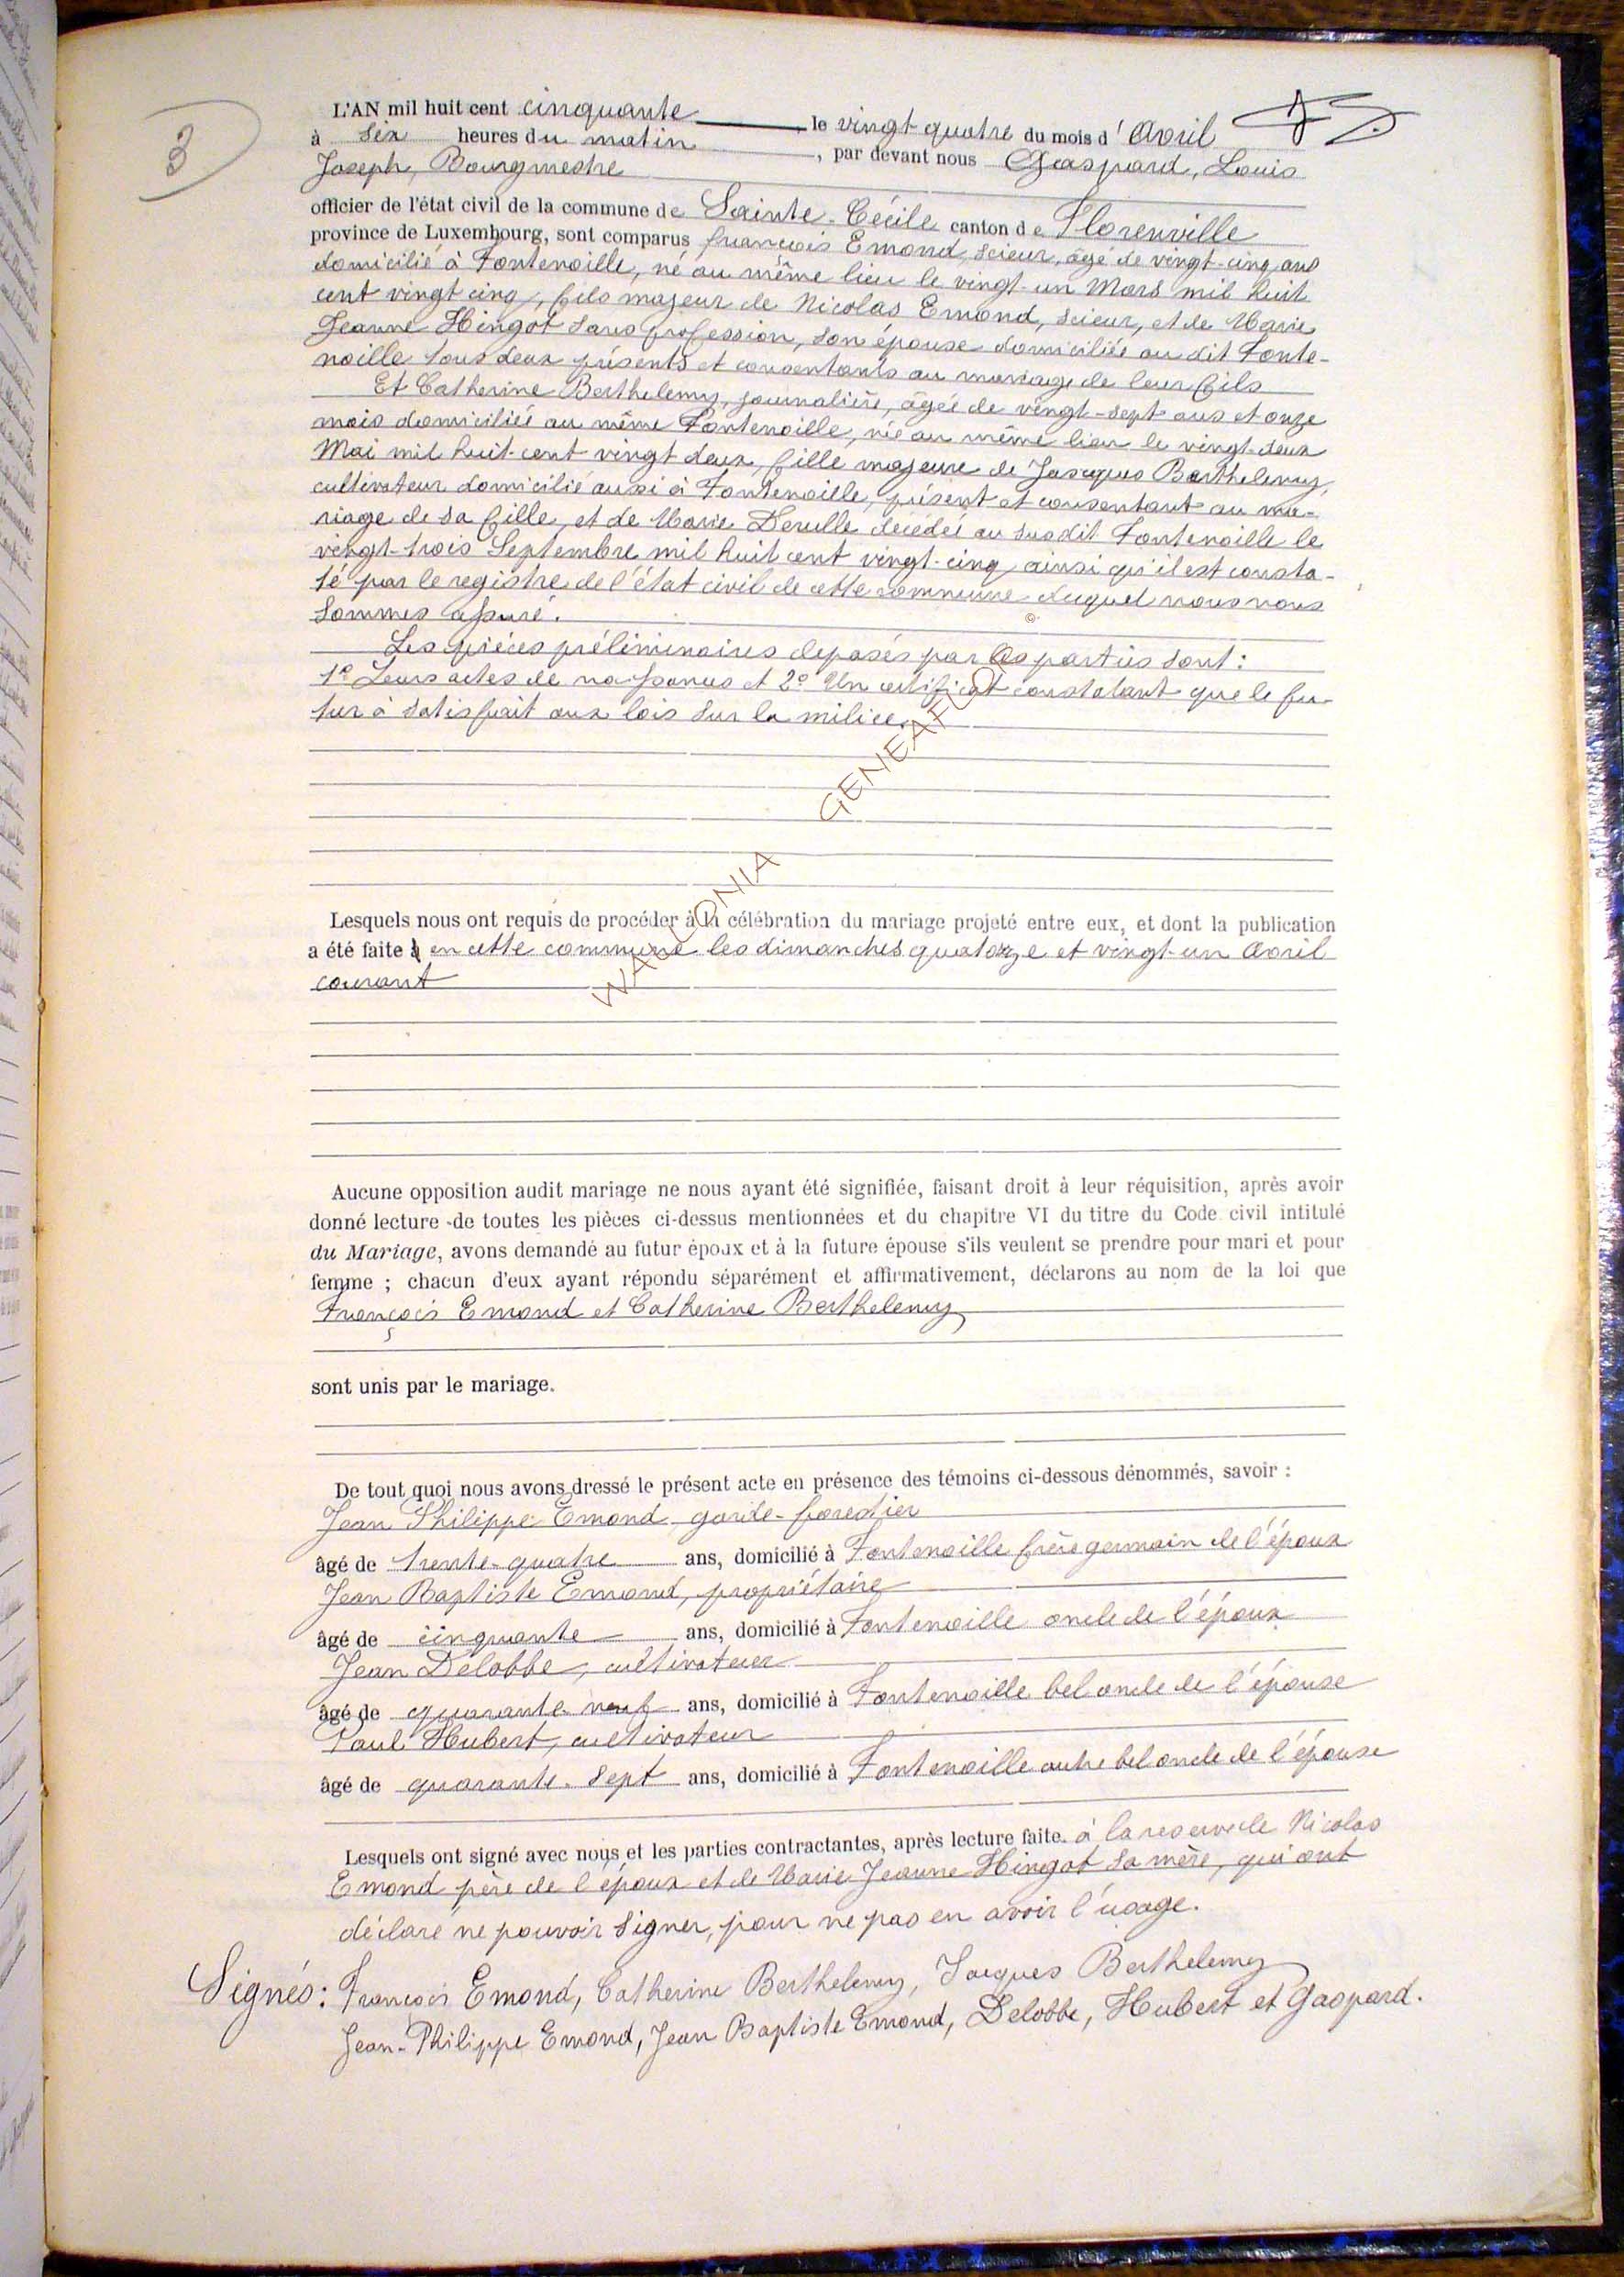 3
L'AN mil huit cent cinquante, le vingt-quatre du mois d'Avril
à six heures du matin, par devant nous Gaspard, Louis
Joseph, Bourgmestre
officier de l'état civil de la commune de Sainte-Cécile canton de Florenville
province de Luxembourg, sont comparus françois Emond, scieur, âgé de vingt-cinq ans
domicilié à Fontenoille, né au même lieu le vingt-un Mars mil huit
cent vingt cinq, fils majeur de Nicolas Emond, scieur, et de Marie
Jeanne Hingot sans profession, son épouse domiciliés au dit Fonte-
noille tous deux présents et consentants au mariage de leur fils
Et Catherine Berthelemy, journalière, âgée de vingt-sept ans et onze
mois domiciliée au même Fontenoille, née au même lieu le vingt-deux
Mai mil huit-cent vingt deux, fille majeure de Jacques Berthelemy,
cultivateur domicilié aussi à Fontenoille, présent et consentant au ma-
riage de sa fille, et de Marie Derulle décédée au susdit Fontenoille le
vingt-trois Septembre mil huit cent vingt-cinq ainsi qu'il est consta-
té par le registre de l'état civil de cette commune duquel nous nous
sommes assuré.
Les pièces préliminaires deposés par les parties sont :
1° Leurs actes de naissances et 2° Un certificat constatant que le fu-
tur a satisfait aux lois sur la milice.
© WALLONIA GENEAFLOR
Lesquels nous ont requis de procéder à la célébration du mariage projeté entre eux, et dont la publication
a été faite en cette commune les dimanches quatorze et vingt-un Avril
courant
Aucune opposition audit mariage ne nous ayant été signifiée, faisant droit à leur réquisition, après avoir
donné lecture de toutes les pièces ci-dessus mentionnées et du chapitre VI du titre du Code civil intitulé
du Mariage, avons demandé au futur époux et à la future épouse s'ils veulent se prendre pour mari et pour
femme ; chacun d'eux ayant répondu séparément et affirmativement, déclarons au nom de la loi que
François Emond et Catherine Berthelemy
sont unis par le mariage.
De tout quoi nous avons dressé le présent acte en présence des témoins ci-dessous dénommés, savoir :
Jean Philippe Emond garde-forestier
âgé de trente-quatre ans, domicilié à Fontenoille frère germain de l'époux
Jean Baptiste Emond, propriétaire
âgé de cinquante ans, domicilié à Fontenoille oncle de l'époux
Jean Delobbe, cultivateur
âgé de quarante-neuf ans, domicilié à Fontenoille bel oncle de l'épouse
Paul Hubert, cultivateur
âgé de quarante-sept ans, domicilié à Fontenoille autre bel oncle de l'épouse
Lesquels ont signé avec nous et les parties contractantes, après lecture faite. à la reserve de Nicolas
Emond père de l'époux et de Marie Jeanne Hingot sa mère, qui ont
déclaré ne pouvoir signer, pour ne pas en avoir l'usage.
Signés : François Emond, Catherine Berthelemy, Jacques Berthelemy
Jean-Philippe Emond, Jean Baptiste Emond, Delobbe, Hubert et Gaspard.